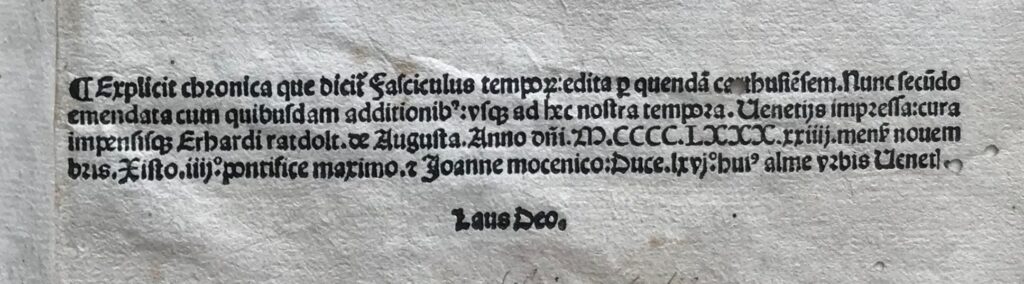 ¶ Explicit chronica que dicit᷑ Fasciculus tempoꝝ: edita ꝑ quendã carthusiẽsem. Nunc secũdo
emendata cum quibusdam additionibꝰ: vsqꝫ ad hec nostra tempora. Uenetijs impressa: cura
impensisqꝫ Erhardi ratdolt. de Augusta. Anno dñi. M.CCCC.LXXX.xxiiij. menẜ nouem
bris. Xisto. iiij.º pontifice maximo. ⁊ Joanne mocenico: Duce. lxvj.º huiꝰ alme vrbis Uenetl.
Laus Deo.